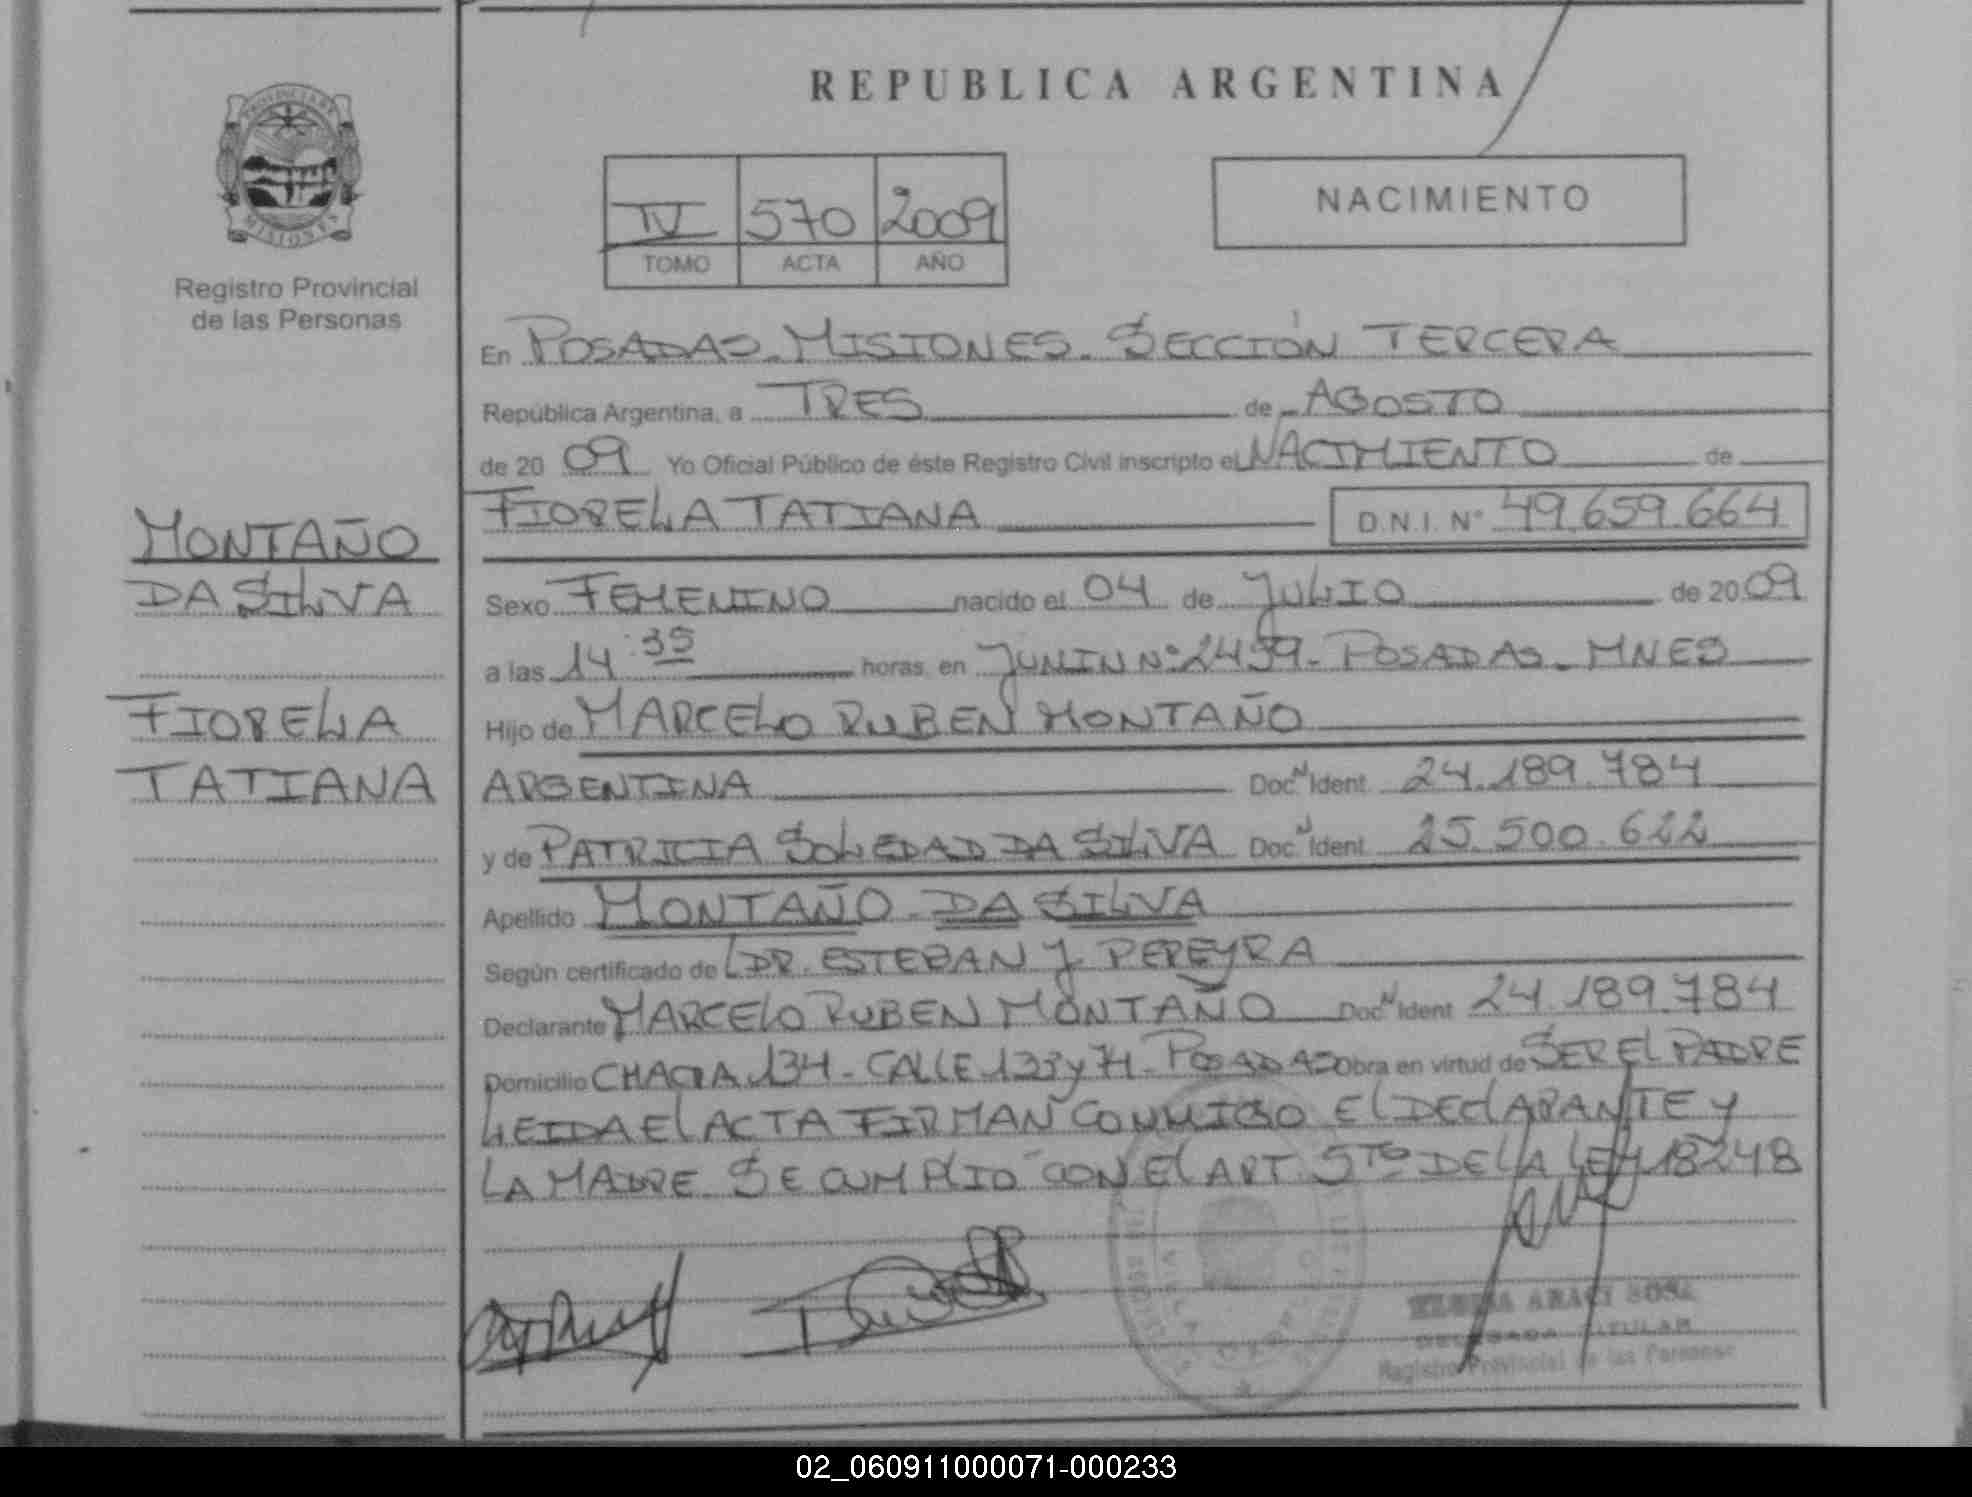 REPUBLICA ARGENTINA
PROVINCIA DE
MISIONES
Registro Provincial
de las Personas
IV 570 2009
TOMO ACTA AÑO
NACIMIENTO
En POSADAS-MISIONES-SECCIÓN TERCERA
República Argentina, a TRES de AGOSTO
de 20 09 Yo Oficial Público de éste Registro Civil inscripto el NACIMIENTO de
FIORELLA TATIANA D.N.I. Nº 49.659.664
MONTAÑO
DA SILVA
FIORELLA
TATIANA
Sexo FEMENINO nacido el 04 de JULIO de 2009
a las 14:35 horas, en JUNIN Nº 2459-POSADAS-MNES
Hijo de MARCELO RUBEN MONTAÑO
ARGENTINA Doc. N Ident. 24.189.784
y de PATRICIA SOLEDAD DA SILVA Doc. N Ident. 25.500.622
Apellido MONTAÑO-DA SILVA
Según certificado de DR. ESTEBAN J. PEREYRA
Declarante MARCELO RUBEN MONTAÑO Doc. N Ident 24.189.784
Domicilio CHACRA 134-CALLE 133 y 74-POSADAS Obra en virtud de SER EL PADRE
LEIDA EL ACTA FIRMAN CONMIGO EL DECLARANTE Y
LA MADRE SE CUMPLIO CON EL ART. 5TO DE LA LEY 18248
ARACI SOSA
DELEGADA TITULAR
Registro Provincial de las Personas
02_060911000071-000233